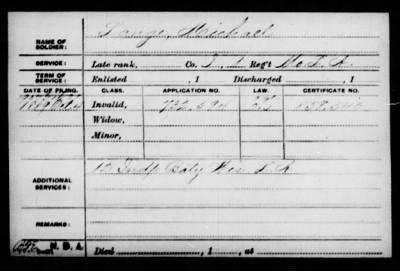 NAME OF SOLDIER: Lange, Michael
SERVICE: Late rank, Co. I, 1 Reg't Mo. L. A.
TERM OF SERVICE: Enlisted , 1 Discharged , 1
DATE OF FILING. CLASS. APPLICATION NO. LAW. CERTIFICATE NO.
Invalid, 732.594
Widow,
Minor,
ADDITIONAL SERVICES: 12 Indp Baty Wis. L A
REMARKS:
Died , 1 , at